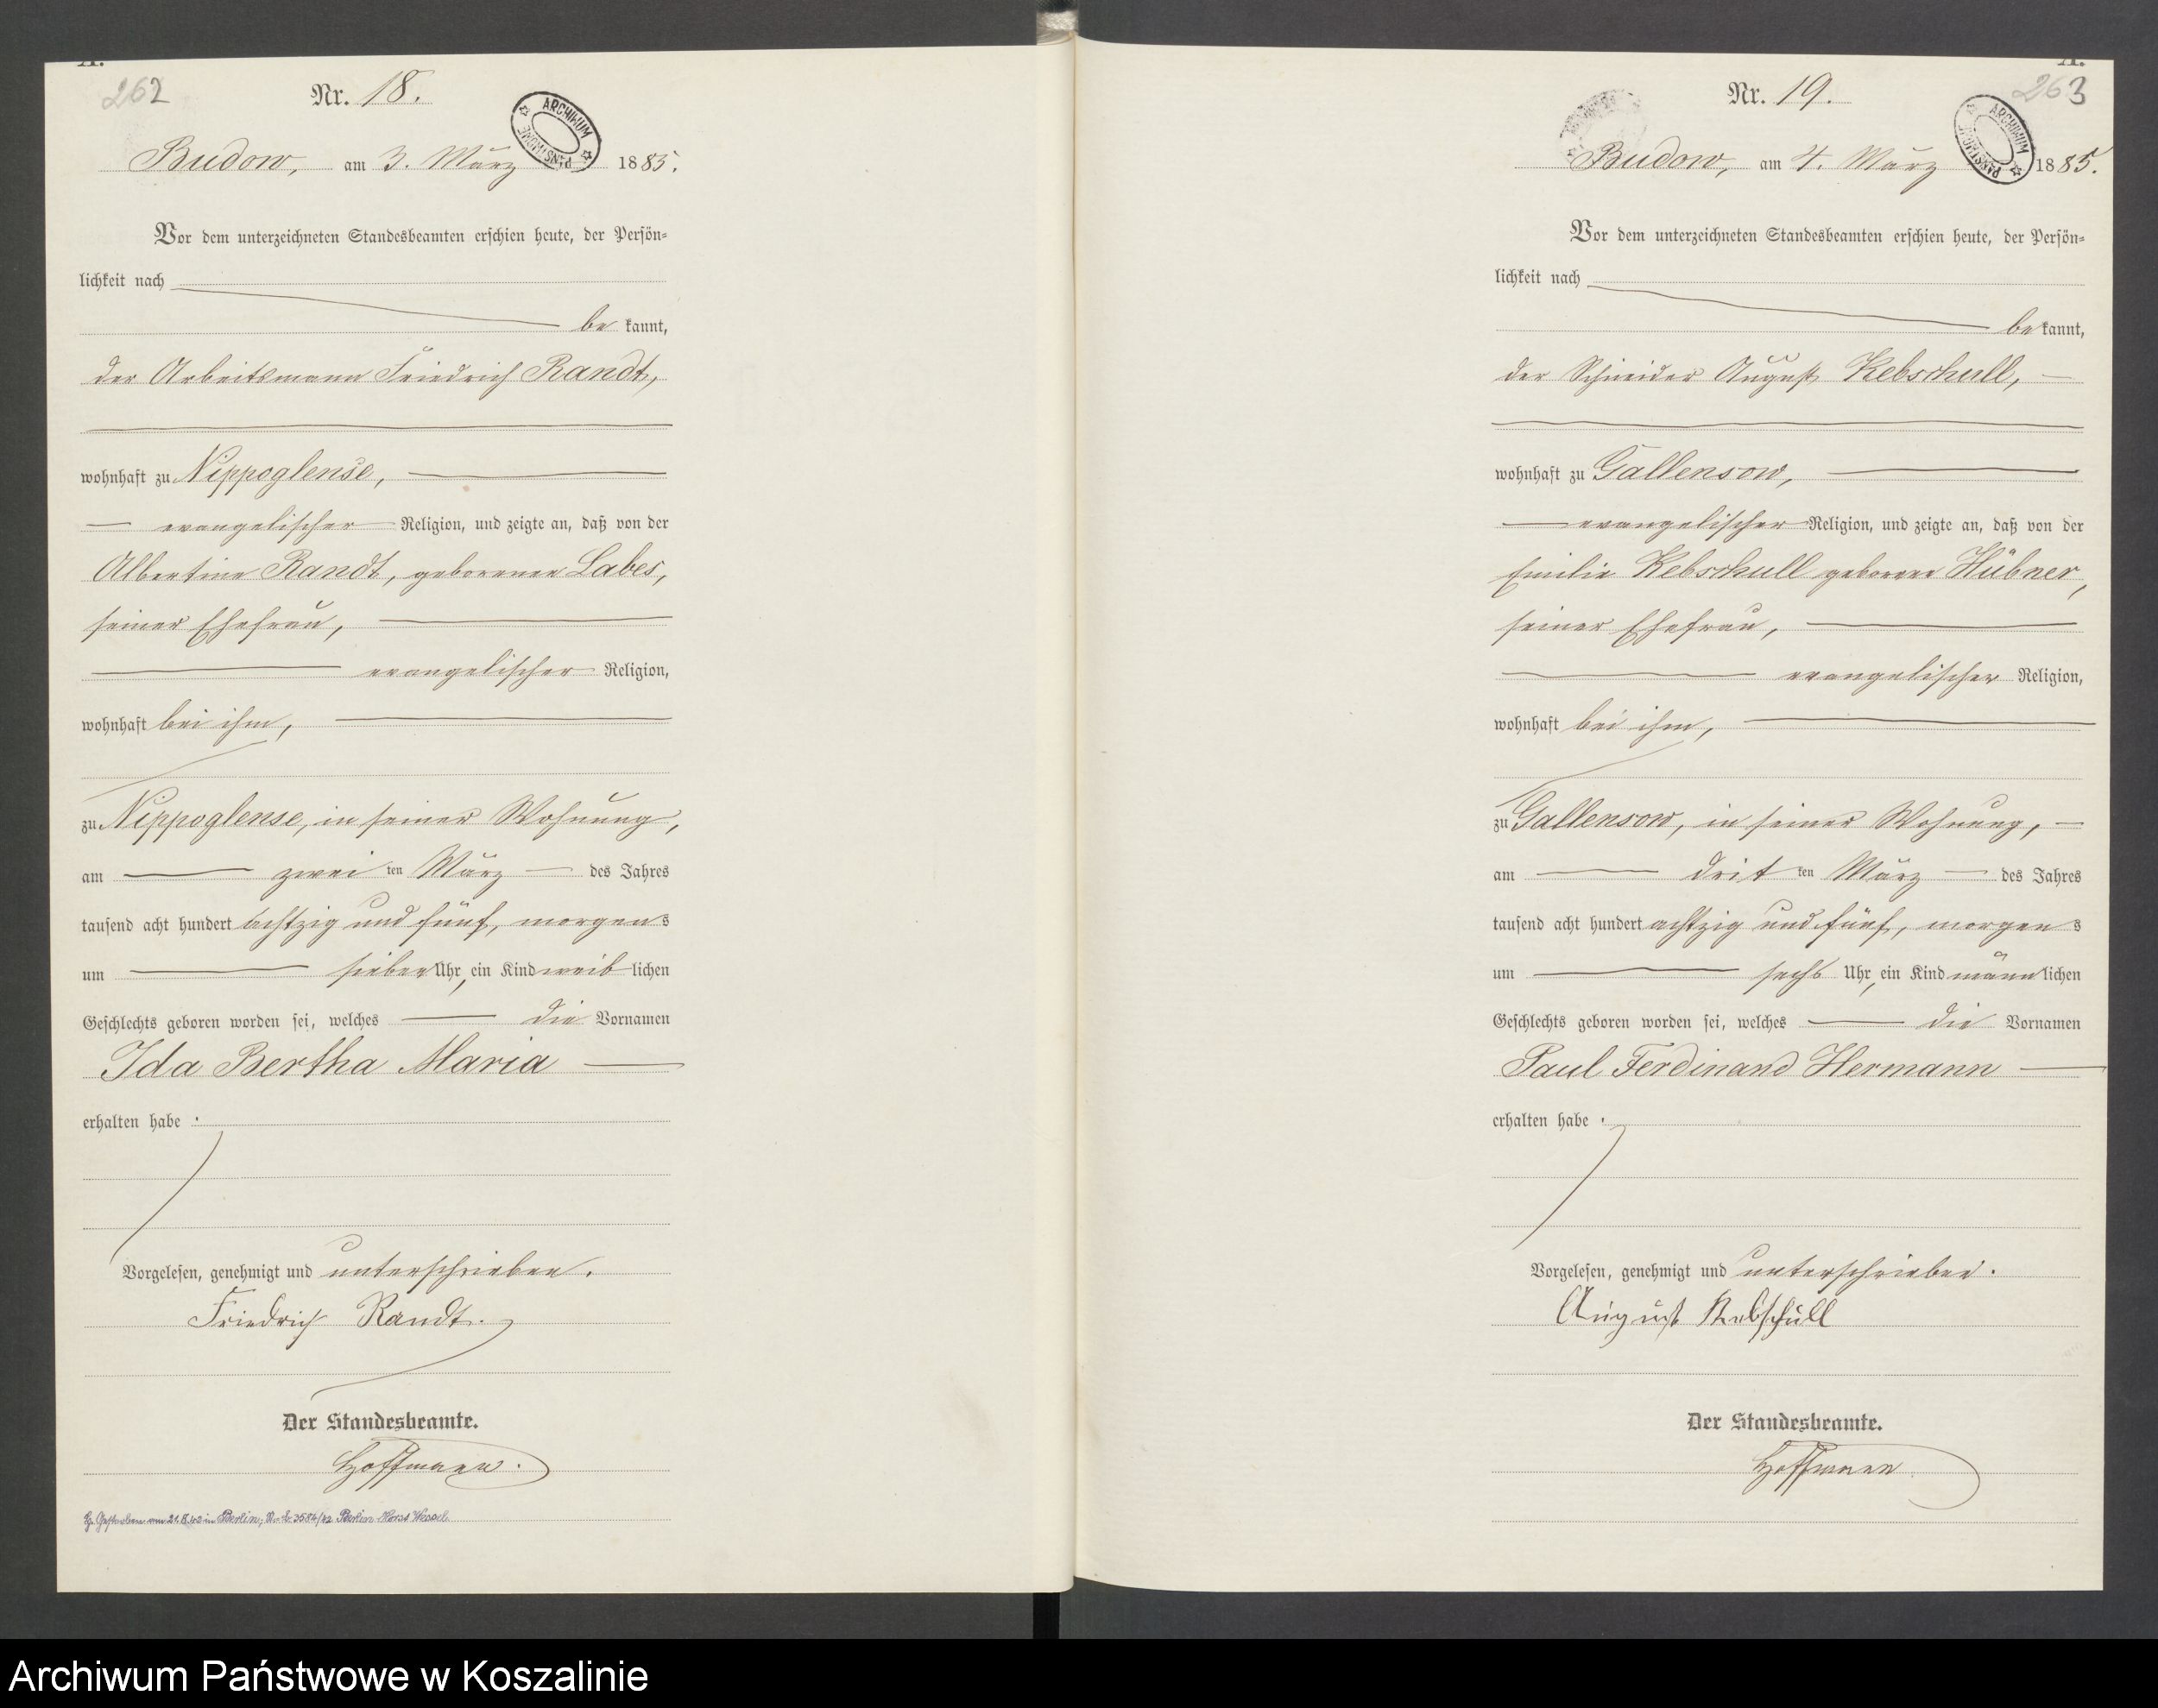 A.
262
Nr. 18.
ARCHIWUM PAŃSTWOWE
Budow, am 3. März 1885.
Vor dem unterzeichneten Standesbeamten erschien heute, der Persön-
lichkeit nach
be kannt,
der Arbeitsmann Friedrich Randt,
wohnhaft zu Nippoglense,
evangelischer Religion, und zeigte an, daß von der
Albertine Randt, geborenen Labes,
seiner Ehefrau,
evangelischer Religion,
wohnhaft bei ihm,
zu Nippoglense, in seiner Wohnung,
am zwei ten März des Jahres
tausend acht hundert achtzig und fünf, morgens
um sieben Uhr, ein Kind weib lichen
Geschlechts geboren worden sei, welches die Vornamen
Ida Bertha Maria
erhalten habe.
Vorgelesen, genehmigt und unterschrieben.
Friedrich Randt.
Der Standesbeamte.
Hoffmann.
Gestorben am 21. in Berlin; Berlin Horst Wessel
A.
263
Nr. 19.
ARCHIWUM PAŃSTWOWE
Budow, am 4. März 1885.
Vor dem unterzeichneten Standesbeamten erschien heute, der Persön-
lichkeit nach
be kannt,
der Schneider August Kebschull,
wohnhaft zu Gallensow,
evangelischer Religion, und zeigte an, daß von der
Emilie Kebschull geborene Hübner,
seiner Ehefrau,
evangelischer Religion,
wohnhaft bei ihm,
zu Gallensow, in seiner Wohnung,
am drit ten März des Jahres
tausend acht hundert achtzig und fünf, morgens
um sechs Uhr, ein Kind männ lichen
Geschlechts geboren worden sei, welches die Vornamen
Paul Ferdinand Hermann
erhalten habe.
Vorgelesen, genehmigt und unterschrieben.
August Kebschull
Der Standesbeamte.
Hoffmann
Archiwum Państwowe w Koszalinie